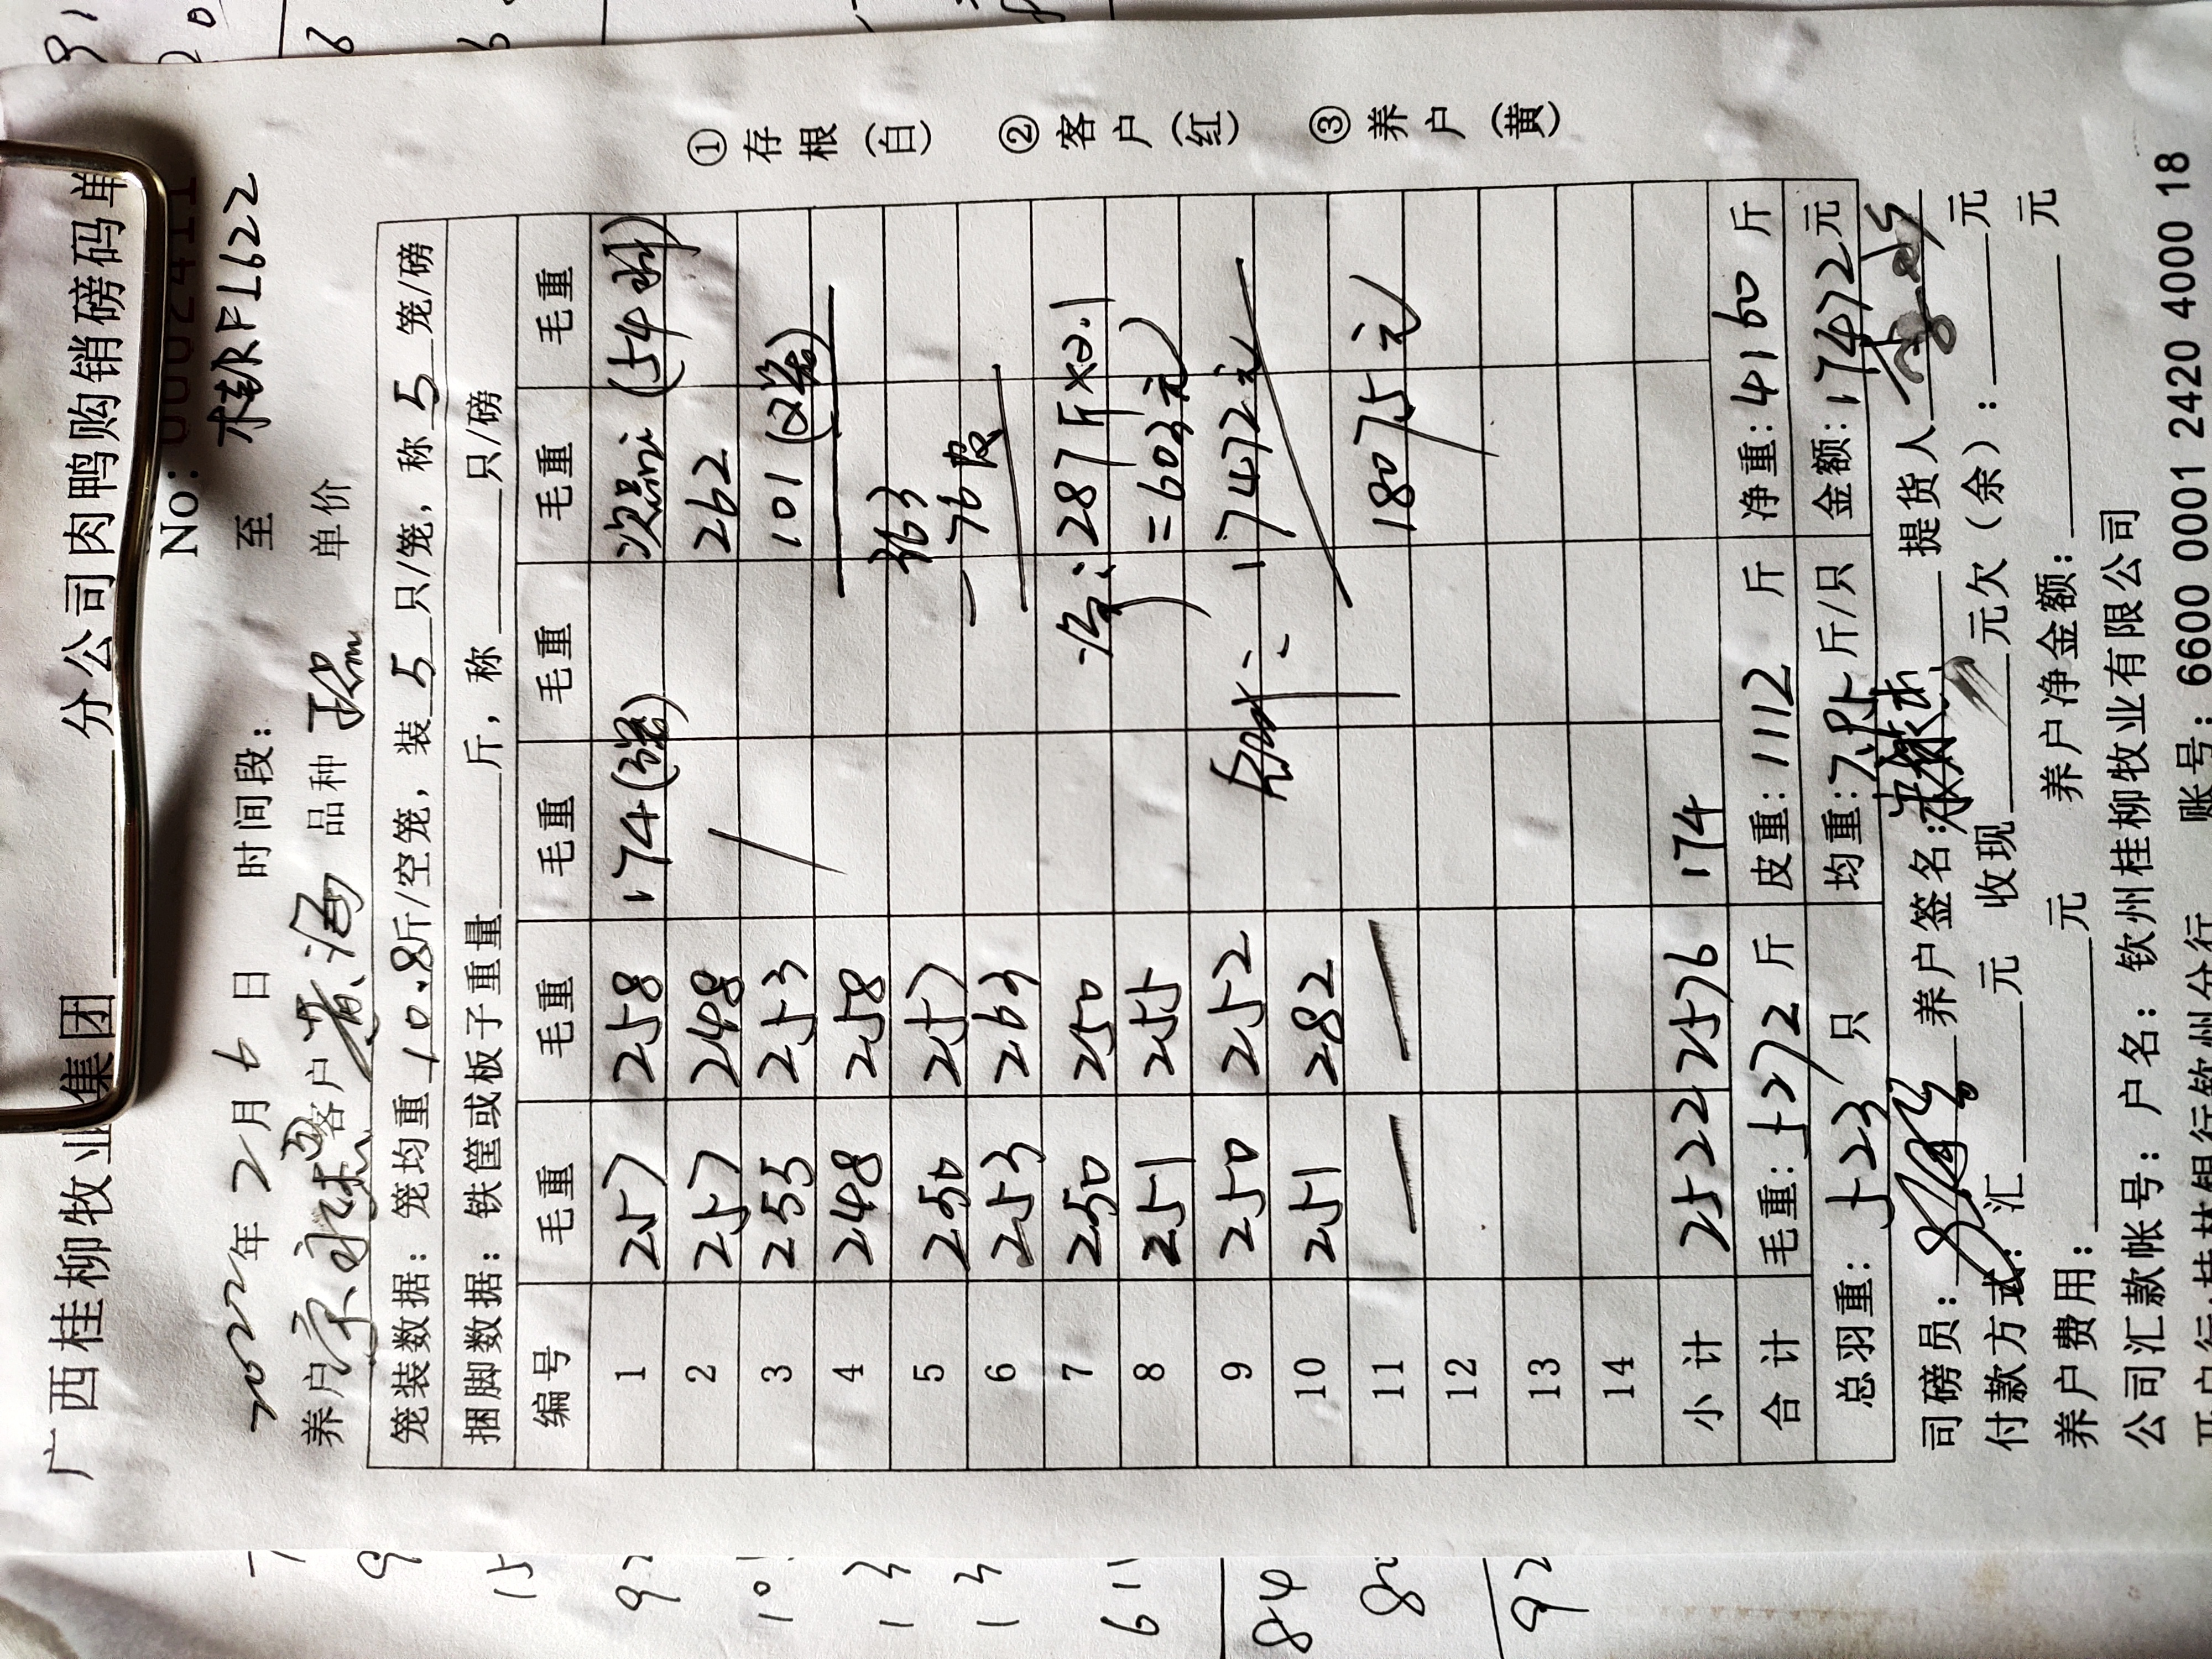 广西桂柳牧业集团 分公司肉鸭购销磅码单
No: 0002411
2022年2月6日 时间段: 至 桂RFL622
养户 客户 黄海 品种 单价
笼装数据：笼均重10.8斤/空笼，装5只/笼，称5笼/磅
捆脚数据：铁筐或板子重量 斤，称 只/磅
编号 毛重 毛重 毛重 毛重 毛重 毛重
1 257 258 174 次品: (54只)
2 257 248 262
3 255 253 101
4 248 258
5 250 257 363
6 253 263 -76皮
7 250 250 净: 287斤×2.1
8 251 255 =603元
9 250 252 17472元
10 251 282
11 18075元
12
13
14
小计 2522 2576 174
合计 毛重:5272斤 皮重:1112斤 净重:4160斤
总羽重: 523只 均重: 斤/只 金额:17472元
司磅员: 养户签名: 提货人
付款方式: 汇 元 收现 元欠（余）: 元
养户费用: 元 养户净金额: 元
公司汇款帐号：户名：钦州桂柳牧业有限公司
开户行:桂林银行钦州分行 账号：6600 0001 2420 4000 18
①存根(白) ②客户(红) ③养户(黄)